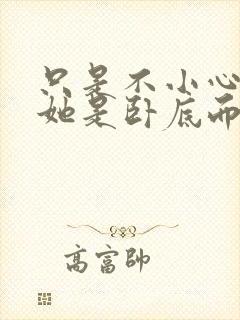 只是不小心
她是卧底而
高富帥